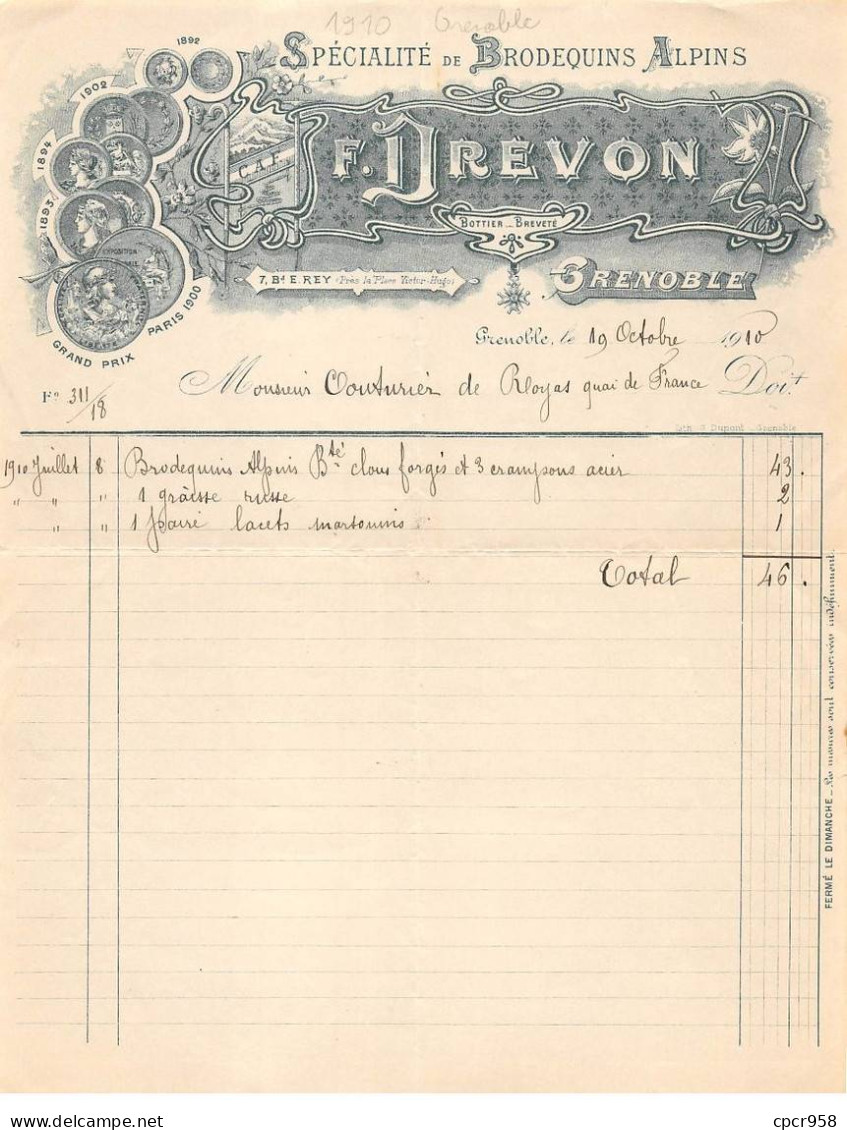 1910 Grenoble
SPÉCIALITÉ DE BRODEQUINS ALPINS
1892
1902
1894
1893
EXPOSITION
GRAND PRIX PARIS 1900
C.A.F.
F. DREVON
BOTTIER _ BREVETÉ
7, Bd E. REY (Près la Place Victor-Hugo)
GRENOBLE
Grenoble, le 19 Octobre 1910
Monsieur Couturier de Royas quai de France Doit
F° 311/18
Lith. G. Dupont _ Grenoble
1910 Juillet 8 Brodequins Alpins Bté clous forgés et 3 crampons acier 43.
" " " 1 graisse russe 2
" " " 1 paire lacets marsouins 1
Total 46.
FERMÉ LE DIMANCHE _ Les mesures sont conservées indéfiniment.
delcampe.net
cpcr958